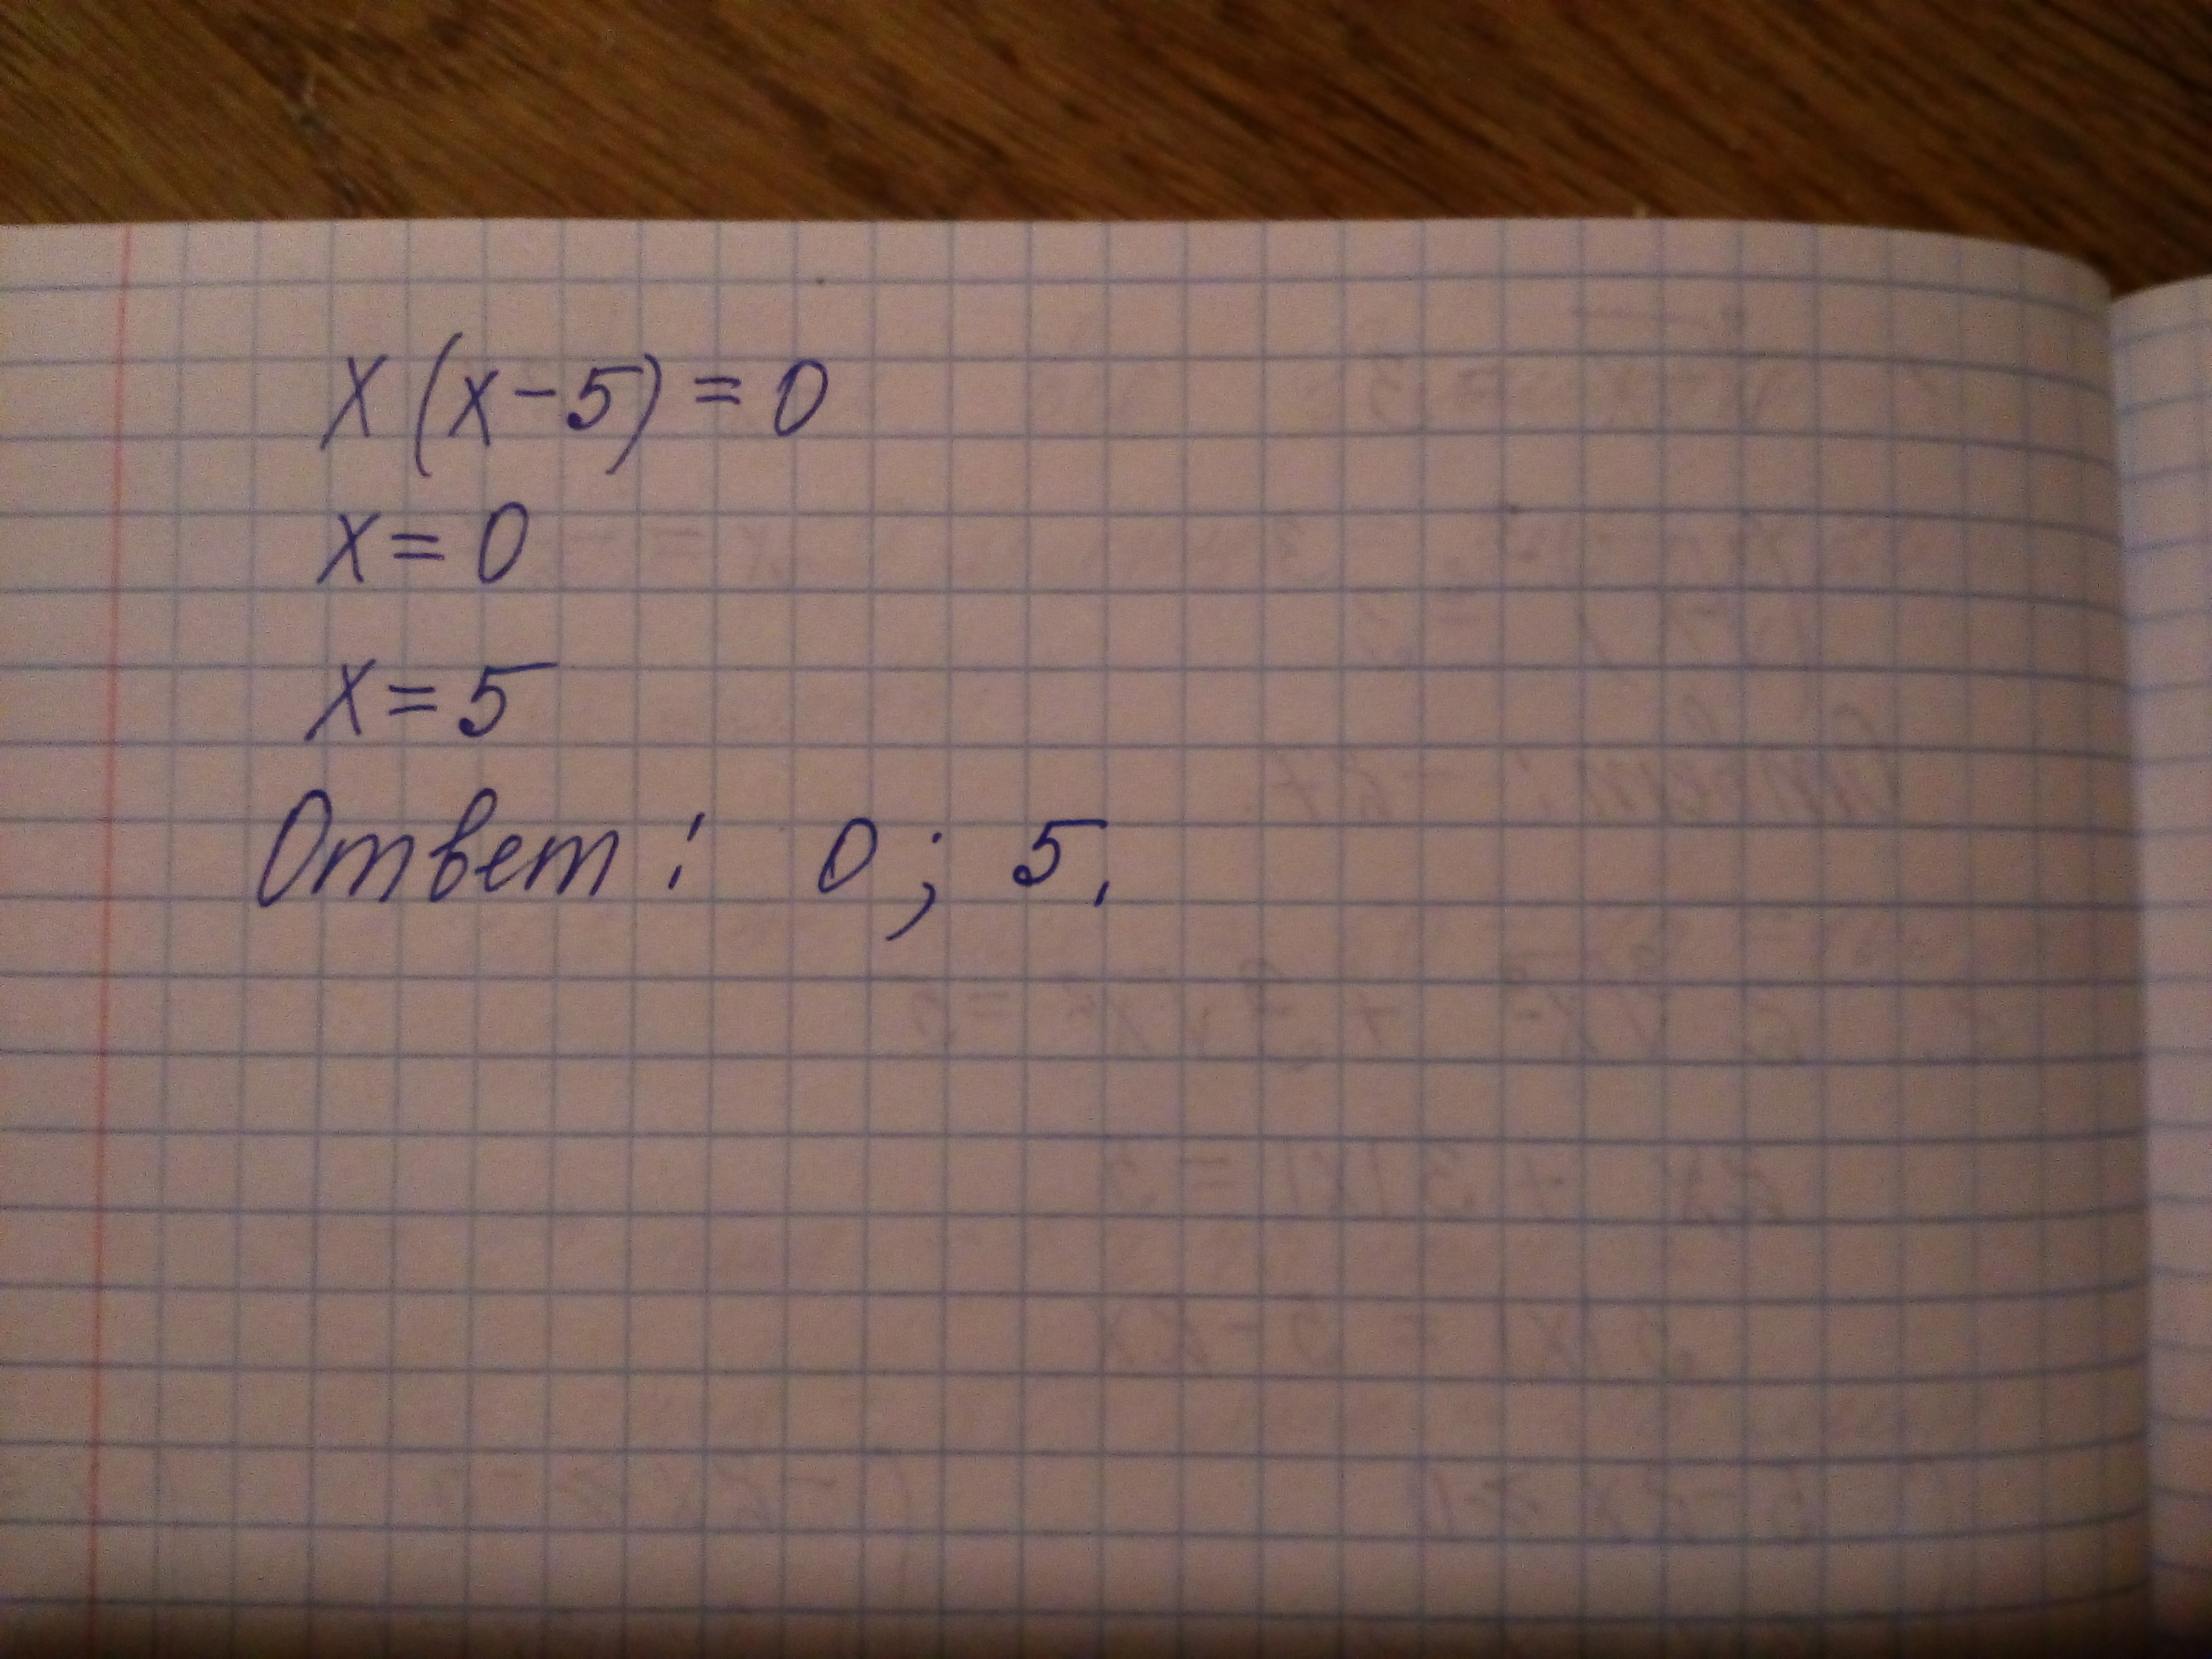 x(x-5)=0
x=0
x=5
Ответ: 0; 5.